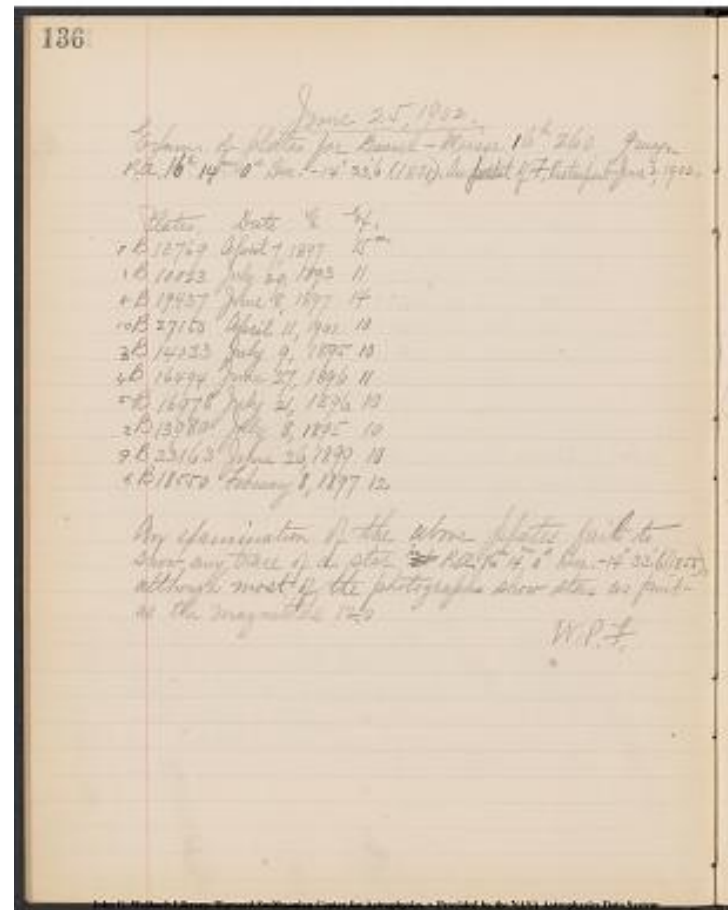 136
June 25, 1902.
Exam. of plates for 16h 260
R.A. 16h 14m 0s Dec. -14° 33'.6 (1855). 1902.
Plates Date Ex.
7 B 12769 April 7, 1897 15m
1 B 10023 July 20, 1893 11
8 B 19437 June 8, 1897 14
10 B 27150 April 11, 1901 10
3 B 14033 July 9, 1895 10
4 B 16494 June 27, 1896 11
5 B 16678 July 21, 1896 10
2 B 13980 July 8, 1895 10
9 B 23163 June 26, 1899 10
6 B 18550 February 8, 1897 12
An examination of the above plates fails to
show any trace of a star in R.A. 16h 14m 0s Dec. -14° 33'.6 (1855),
although most of the photographs show stars as faint
as the magnitude
W.P.F.